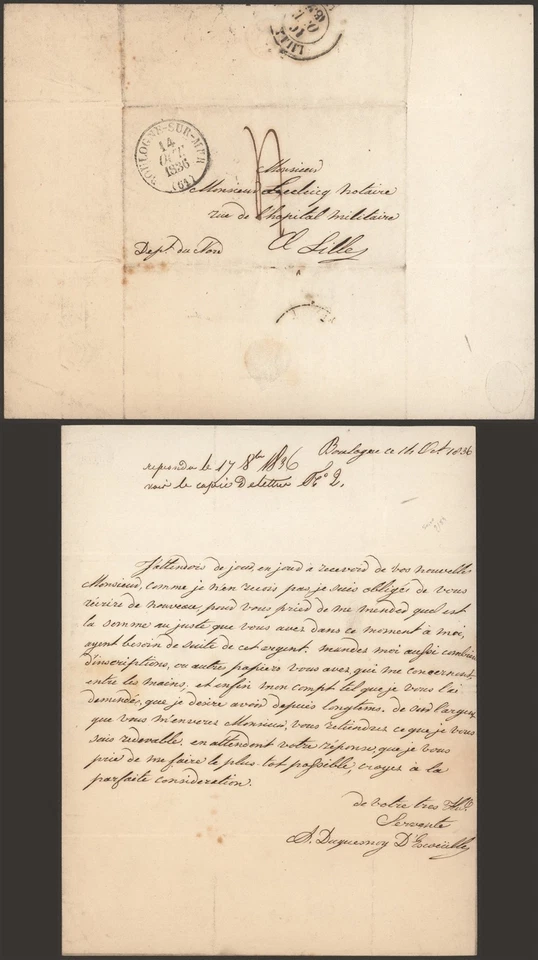 LILLE
BOULOGNE-SUR-MER
14
OCT.
1836
(61)
Monsieur
Monsieur Leclercq Notaire
rue de l'hopital militaire
A Lille
Dept. du Nord
Boulogne ce 14 Oct 1836
repondu le 17 8bre 1836
voir le copie De lettre Fo 2.
J'attendois de jour, en jour a recevoid de vos nouvelle
Monsieur, comme je n'en recois pas, je suis obligé de vous
récrire de nouveau, poud vous pried de me mended quel est
la somme au juste que vous aves dans ce moment à moi,
ayent besoin de suite de cet argent, mandes moi aussi combien
d'inscriptions, ou autres papiers vous aves, qui me concernent,
entre les mains, et enfin mon compt tel que je vous l'ai
demendé, que je désire avoir depuis longtems. de sud l'argent
que vous m'enveres Monsieur, vous retiendres ce que je vous
suis redevable, en attendent votre réponse, que je vous
prie de me faire le plus-tot possible, croyes à la
parfaite consideration.
de votre tres Hble
Servante
A. Duquesnoy D'Escoeuilles